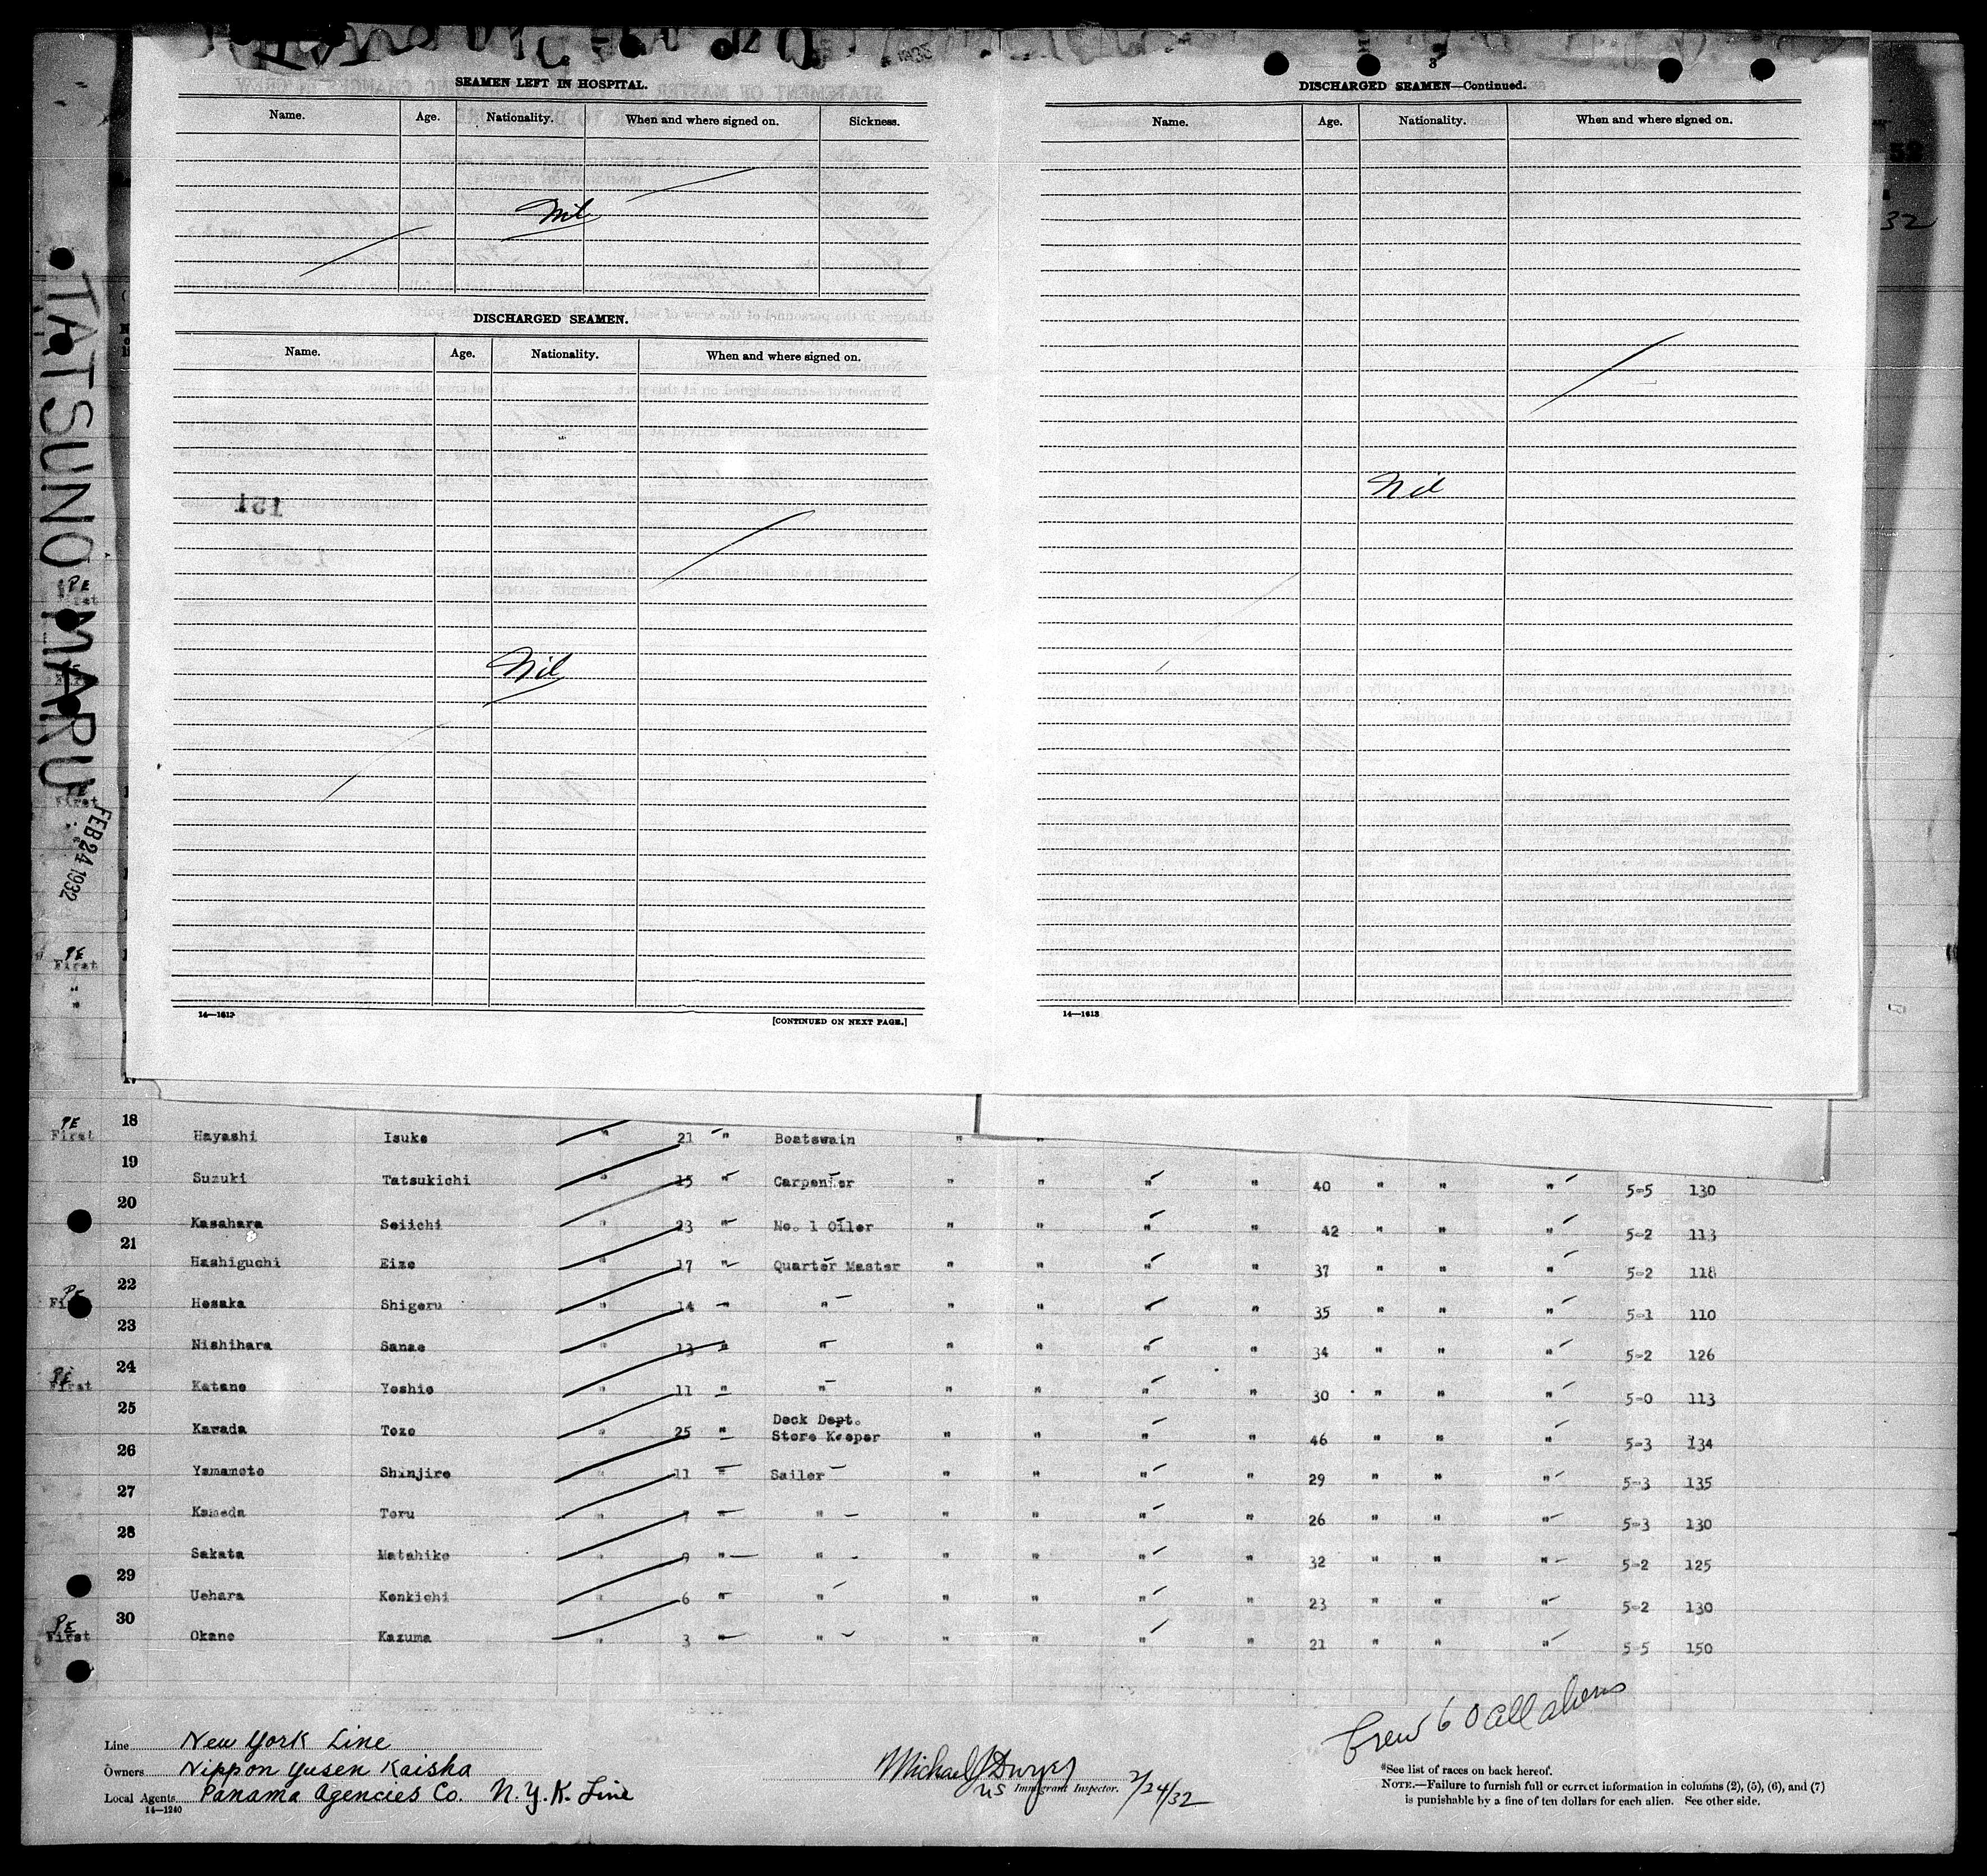 TATSUNO MARU
FEB 24 1932
SEAMEN LEFT IN HOSPITAL.
Name. Age. Nationality. When and where signed on. Sickness.
Nil
DISCHARGED SEAMEN.
Name. Age. Nationality. When and where signed on.
151
Nil
14—1613
[CONTINUED ON NEXT PAGE.]
3
DISCHARGED SEAMEN—Continued.
Name. Age. Nationality. When and where signed on.
Nil
14—1613
32
PE
First
PE
First
"
"
17
18
PE
First Hayashi Isuke " 21 " Boatswain " "
19
Suzuki Tatsukichi " 15 " Carpenter " " " " 40 " " " 5-5 130
20
Kasahara Seiichi " 23 " No. 1 Oiler " " " " 42 " " " 5-2 113
21
Hashiguchi Eizo " 17 " Quarter Master " " " " 37 " " " 5-2 118
22
PE
First Hosaka Shigeru " 14 " " " " " " 35 " " " 5-1 110
23
Nishihara Sanae " 13 " " " " " " 34 " " " 5-2 126
24
PE
First Katano Yoshio " 11 " " " " " " 30 " " " 5-0 113
25
Deck Dept.
Kawada Tozo " 25 " Store Keeper " " " " 46 " " " 5-3 134
26
Yamamoto Shinjiro " 11 " Sailor " " " " 29 " " " 5-3 135
27
Kameda Toru " 7 " " " " " " 26 " " " 5-3 130
28
Sakata Matahiko " 9 " " " " " " 32 " " " 5-2 125
29
Uehara Kenkichi " 6 " " " " " " 23 " " " 5-2 130
30
PE
First Okano Kazuma " 3 " " " " " " 21 " " " 5-5 150
Crew 60 all aliens
Line New York Line
Owners Nippon Yusen Kaisha
Local Agents Panama Agencies Co. N.Y.K. Line
14—1240
Michael J Dwyer
US Immigrant Inspector. 2/24/32
*See list of races on back hereof.
NOTE.—Failure to furnish full or correct information in columns (2), (5), (6), and (7)
is punishable by a fine of ten dollars for each alien. See other side.